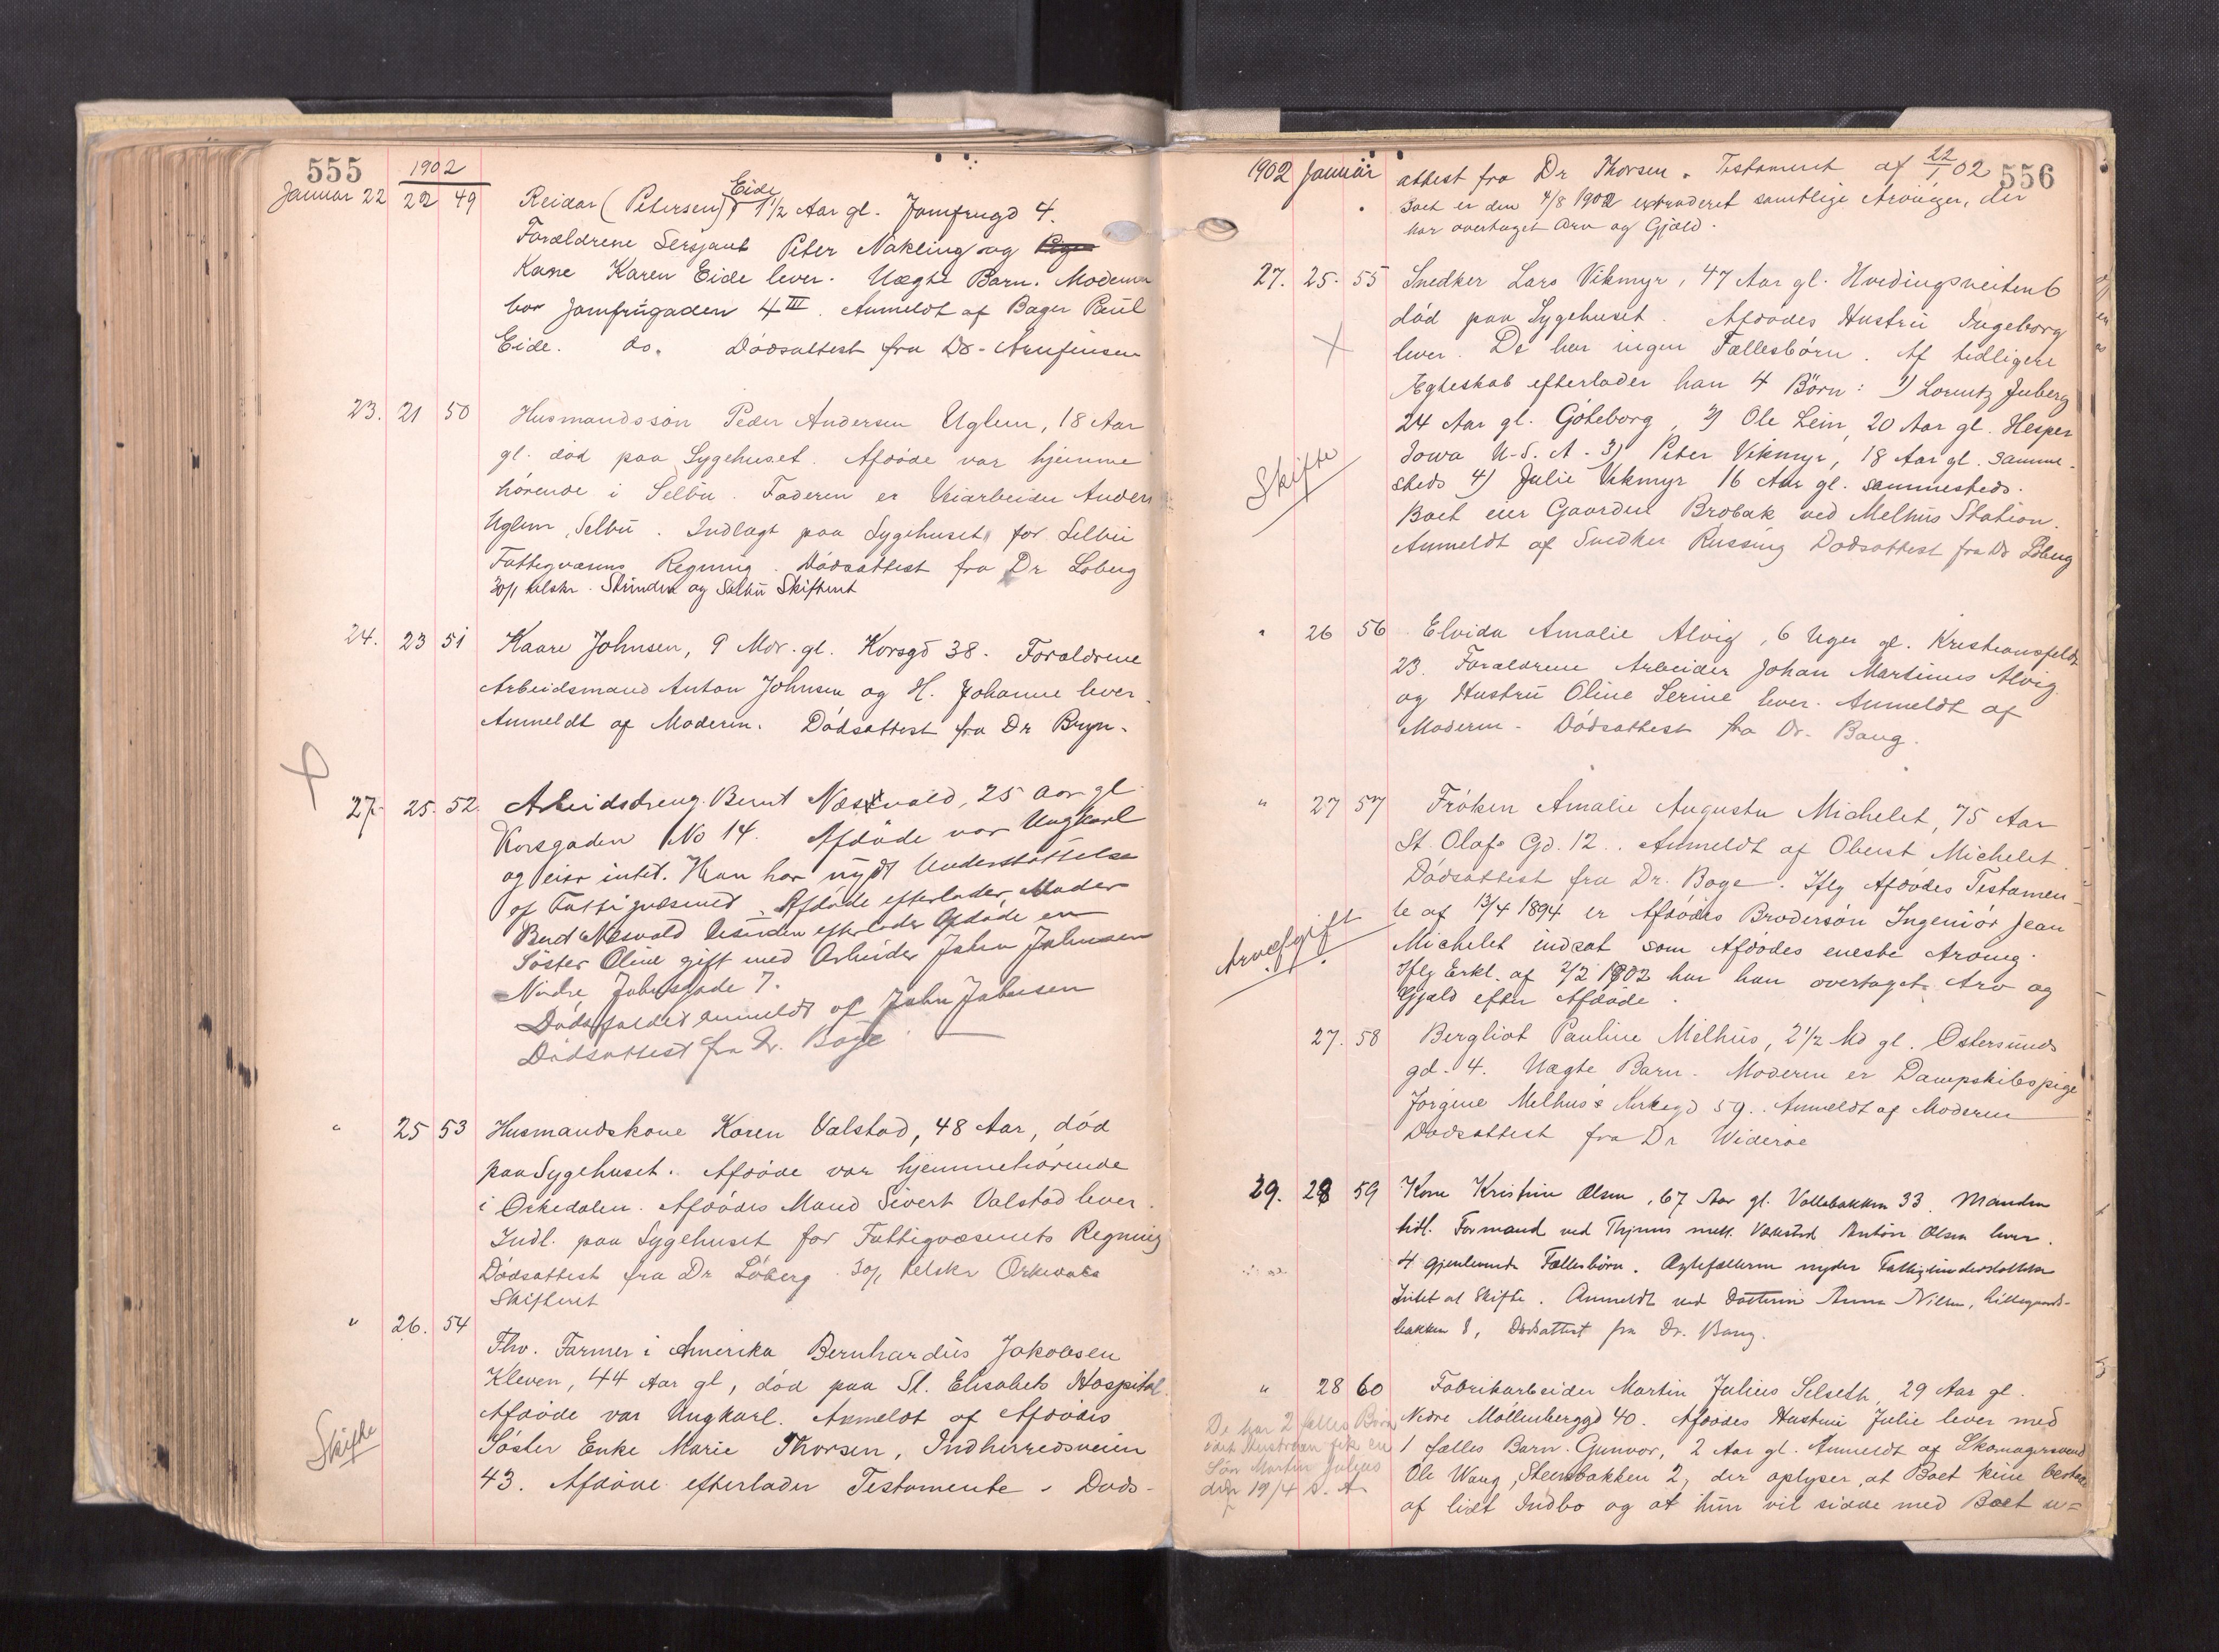 555
1902
Januar 22 22 49 Reidar (Petersen) Eide 1 1/2 Aar gl. Jomfrugd 4.
Forældrene Sersjant Peter Nakling og
Kone Karen Eide lever. Uægte Barn. Moderen
bor Jomfrugaden 4 III. Anmeldt af Bager Paul
Eide. do. Dödsattest fra Dr.
23. 21 50 Husmandssön Peder Andersen Uglem, 18 Aar
gl. död paa Sygehuset. Afdöde var hjemme
hörende i Selbu. Faderen er Veiarbeider Anders
Uglem, Selbu. Indlagt paa Sygehuset for Selbu
Fattigvæsens Regning. Dödsattest fra Dr Löberg
30/1 telskr. Strinden og Selbu Skifteret
24. 23 51 Kaare Johnsen, 9 Mdr. gl. Korsgd 38. Foraldrene
Arbeidsmand Anton Johnsen og H. Johanne lever.
Anmeldt af Moderen. Dödsattest fra Dr Bryn.
27. 25. 52. Arbeidsdreng Bernt Næsvold, 25 aar gl
Korsgaden No 14. Afdöde var Ungkarl
og eier intet. Han har nydt Understöttelse
af Fattigvæsenet. Afdöde efterlader Moder
Næsvold efterlader Afdöde en
Söster Oline gift med Arbeider John Johnsen
Nedre 7.
Dödsfaldet anmeldt af John Johnsen
Dödsattest fra Dr. Boye
" 25 53 Husmandskone Karen Valstad, 48 Aar, död
paa Sygehuset. Afdöde var hjemmehörende
i Orkedalen. Afdödes Mand Sivert Valstad lever.
Indl. paa Sygehuset for Fattigvæsenets Regning
Dödsattest fra Dr Löberg 30/1 telskr Orkedals
Skifteret
" 26. 54
Fhv. Farmer i Amerika Bernhardus Jakobsen
Kleven, 44 Aar gl, död paa St. Elisabets Hospital.
Afdöde var Ungkarl. Anmeldt af Afdödes
Skifte
Söster Enke Marie Thorsen, Indherredsveien
43. Afdöde efterlader Testamente. Döds-
1902 Januar 556
attest fra Dr Thorsen. Testament af 22/1 02
Boet er den 4/8 1902 extraderet samtlige Arvinger, der
har overtaget Arv og Gjæld.
27. 25. 55 Snedker Lars Vikmyr, 47 Aar gl. Hvedingsveiten 6
död paa Sygehuset. Afdödes Hustru Ingeborg
lever. De har ingen Fællesbörn. Af tidligere
Ægteskab efterlader han 4 Börn: 1) Lorentz Juberg
24 Aar gl. Göteborg, 2) Ole Lein, 20 Aar gl. Hesper
Iowa U.S.A. 3) Peter Vikmyr, 18 Aar gl. samme-
Skifte
steds 4) Julie Vikmyr 16 Aar gl. sammesteds.
Boet eier Gaarden Brobak ved Melhus Station.
Anmeldt af Snedker Russing Dödsattest fra Dr Löberg
" 26 56 Elvida Amalie Alvig, 6 Uger gl. Kristiansfeldt
23. Forældrene Arbeider Johan Martinus Alvig
og Hustru Oline Serine lever. Anmeldt af
Moderen. Dödsattest fra Dr. Bang.
" 27 57 Fröken Amalie Augusta Michelet, 75 Aar
St. Olafs Gd. 12. Anmeldt af Oberst Michelet
Dödsattest fra Dr. Boye. Iflg Afdödes Testamen-
te af 13/4 1894 er Afdödes Brodersön Ingeniör Jean
Arveafgift
Michelet indsat som Afdödes eneste Arving.
Iflg Erkl. af 2/2 1902 har han overtaget Arv og
Gjæld efter Afdöde.
27. 58 Bergliot Pauline Melhus, 2 1/2 Md gl. Östersunds
gd. 4. Uægte Barn. Moderen er Dampskibspige
Jörgine Melhus Kirkegd 59. Anmeldt af Moderen
Dödsattest fra Dr Wideröe
29. 28 59 Kone Kristine Olsen, 67 Aar gl. Vollabakken 33. Manden
tidl. Formand ved mek. Værksted Anton Olsen lever.
4 gjenlevende Fællesbörn. Ægtefællerne nyder Fattigunderstöttelse
Intet at Skifte. Anmeldt ved Datteren Anna Nilsen, Lillegaards-
bakken 8, Dödsattest fra Dr. Bang.
" 28 60 Fabrikarbeider Martin Julius Selseth, 29 Aar gl.
Nedre Möllenberggd 40. Afdödes Hustru Julie lever med
1 fælles Barn Gunvor, 2 Aar gl. Anmeldt af Skomagersvend
Ole Wang, Steensbakken 2, der oplyser, at Boet kun bestaar
af lidt Indbo og at hun vil sidde med Boet u=
De har 2 fælles Börn
idet Hustruen fik en
Sön Martin Julius
den 19/4 d. A